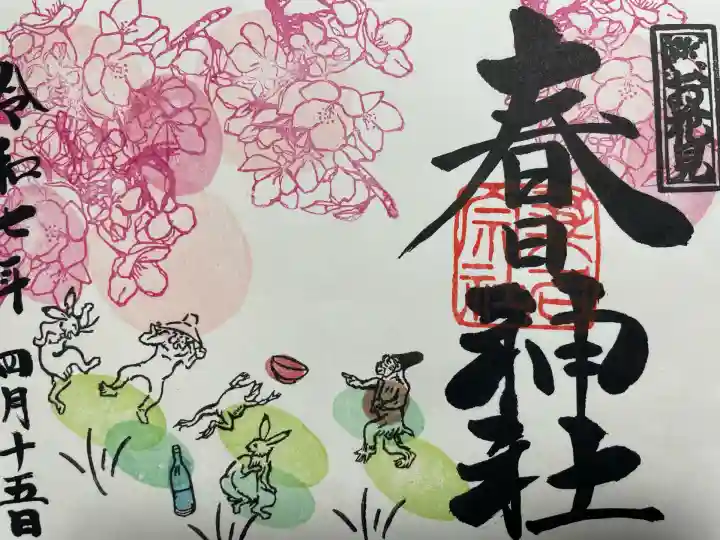 お花見
春日神社
令和七年 四月十五日